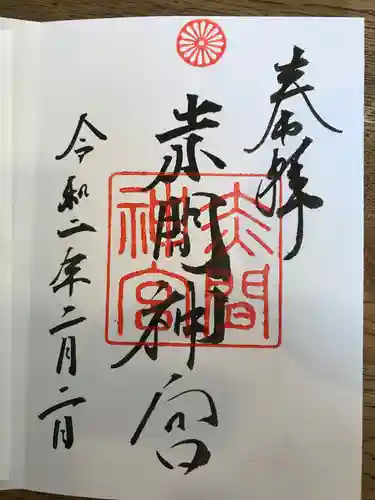 奉拝
赤間神宮
令和二年二月二日
赤間
神宮